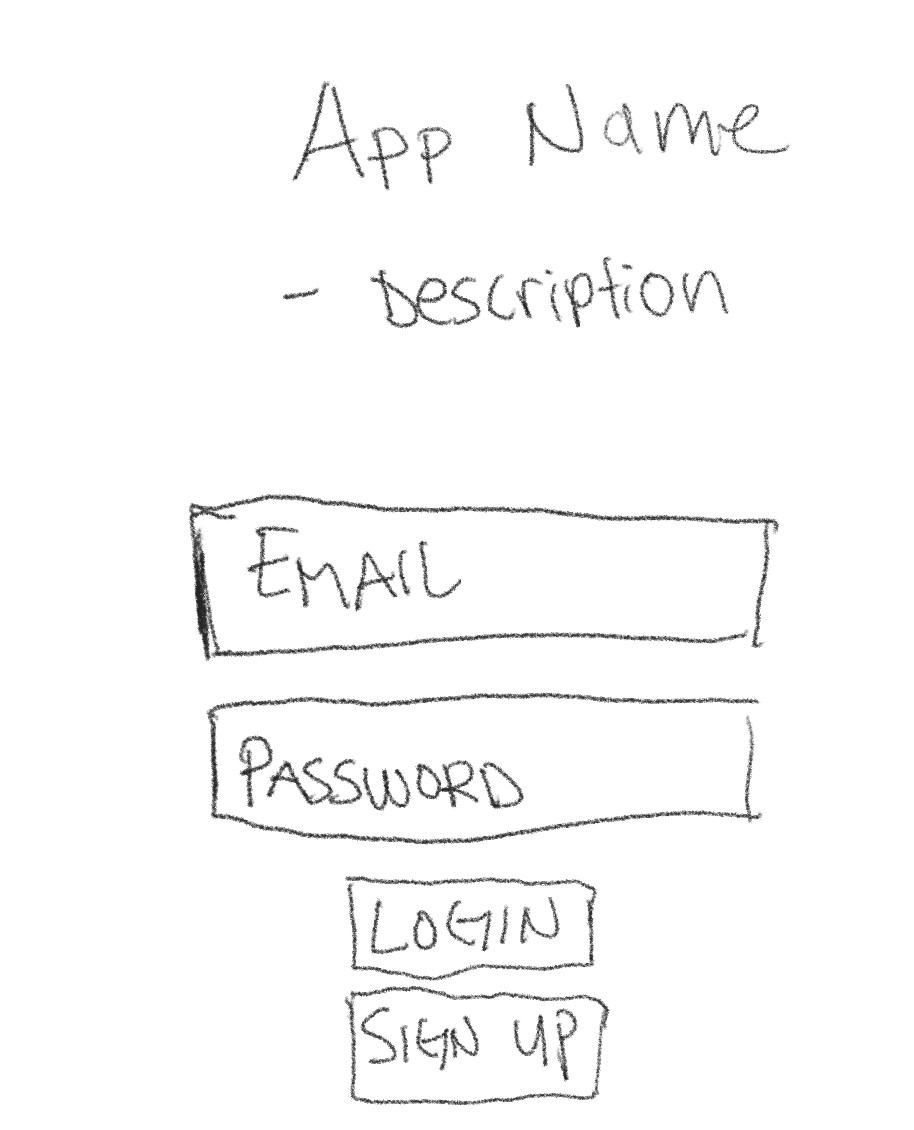 App Name
- Description
EMAIL
PASSWORD
LOGIN
SIGN UP